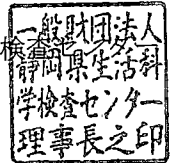 一般財団法人
検査センター
静岡県生活科
学検査センター
理事長之印